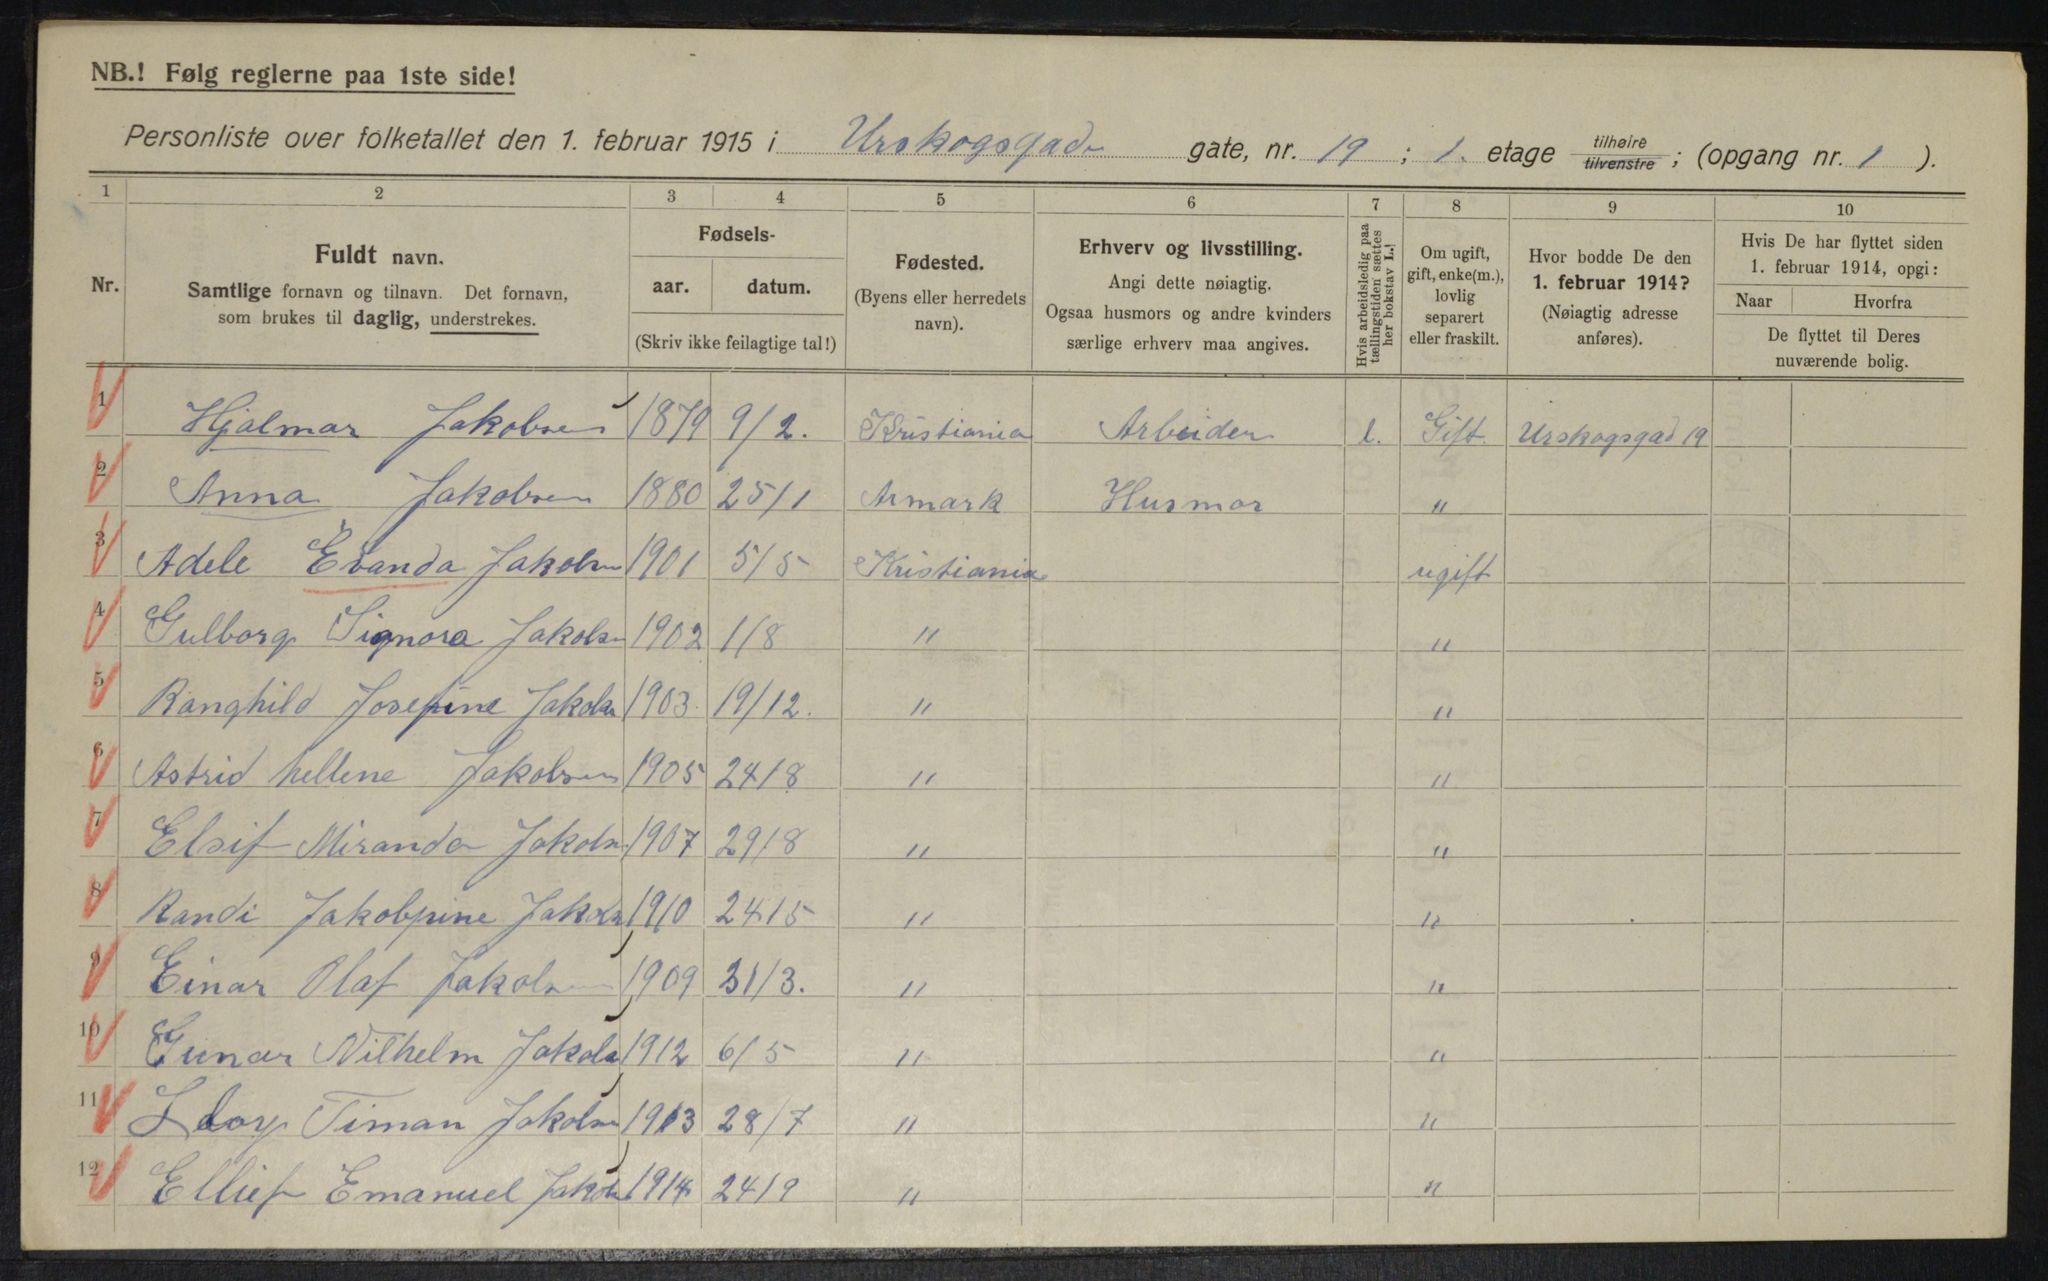 NB.! Følg reglerne paa 1ste side!
Personliste over folketallet den 1. februar 1915 i Urskogsgade gate, nr. 19 ; 1. etage tilhøire tilvenstre ; (opgang nr. 1 ).
1 2 3 4 5 6 7 8 9 10
Nr.
Fuldt navn.
Samtlige fornavn og tilnavn. Det fornavn,
som brukes til daglig, understrekes.
Fødsels-
aar. datum.
(Skriv ikke feilagtige tal!)
Fødested.
(Byens eller herredets
navn).
Erhverv og livsstilling.
Angi dette nøiagtig.
Ogsaa husmors og andre kvinders
særlige erhverv maa angives.
Hvis arbeidsledig paa
tællingstiden sættes
her bokstav L.!
Om ugift,
gift, enke(m.),
lovlig
separert
eller fraskilt.
Hvor bodde De den
1. februar 1914?
(Nøiagtig adresse
anføres).
Hvis De har flyttet siden
1. februar 1914, opgi:
Naar Hvorfra
De flyttet til Deres
nuværende bolig.
1 Hjalmar Jakobsen 1879 9/2. Kristiania Arbeider l. Gift. Urskogsgad 19
2 Anna Jakobsen 1880 25/1 Armark Husmor "
3 Adele Evanda Jakobsn 1901 5/5 Kristiania ugift
4 Gulborg Signora Jakobsn 1902 1/8 " "
5 Ranghild Josefine Jakobsn 1903. 19/12. " "
6 Astrid hellene Jakobsen 1905 24/8 " "
7 Elsif Miranda Jakobsn 1907 29/8 " "
8 Randi Jakobpine Jakobsn 1910 24/5 " "
9 Einar Olaf Jakobsen 1909 31/3. " "
10 Gunar Vilhelm Jakobsn 1912 6/5 " "
11 Timan Jakobsn 1913 28/7 " "
12 Ellief Emanuel Jakobsn 1914 24/9 " "